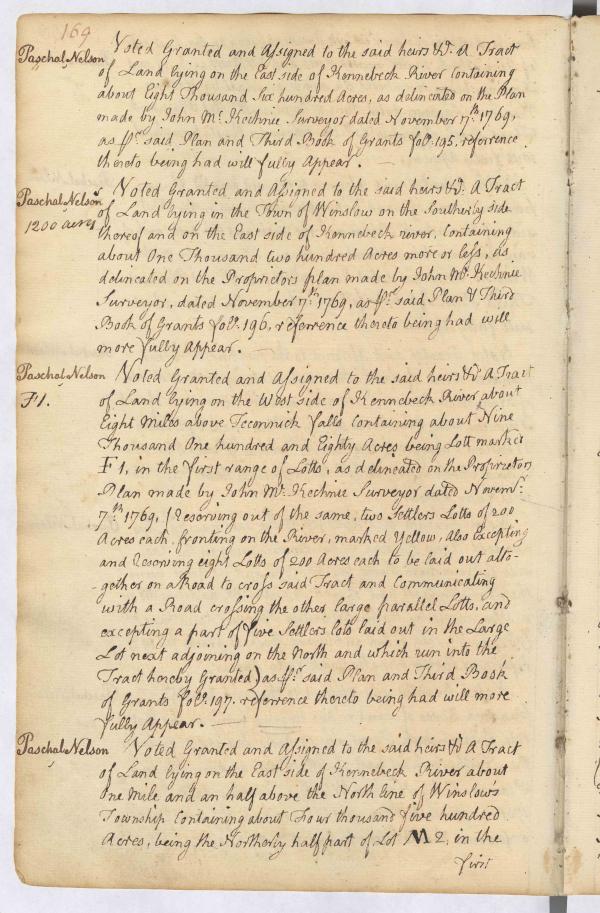 164
Paschal Nelson
Voted Granted and Assigned to the said heirs &c. A Tract
of Land lying on the East side of Kennebeck River Containing
about Eight Thousand Six hundred Acres, as delineated on the Plan
made by John Mc. Kechnie Surveyor dated November 7th. 1769,
as pr. said Plan and Third Book of Grants fol: 195, referrence
thereto being had will fully Appear. —
Paschal Nelson
1200 acres
Voted Granted and Assigned to the said heirs &c. A Tract
of Land lying in the Town of Winslow on the Southerly side
thereof and on the East side of Kennebeck river, Containing
about One Thousand two hundred Acres more or less, as
delineated on the Proprietors plan made by John Mc. Kechnie
Surveyor, dated November 7th. 1769, as pr. said Plan & Third
Book of Grants fol: 196, referrence thereto being had will
more fully Appear. —
Paschal Nelson
F1.
Voted Granted and Assigned to the said heirs &c. A Tract
of Land lying on the West side of Kennebeck River about
Eight Miles above Teconnick falls Containing about Nine
Thousand One hundred and Eighty Acres being Lott markd
F1, in the first range of Lotts, as delineated on the Proprietors
Plan made by John Mc. Kechnie Surveyor dated Novemr.
7th. 1769, (Reserving out of the same, two Settlers Lotts of 200
Acres each, fronting on the River, marked Yellow, Also Excepting
and Reserving eight Lotts of 200 Acres each to be laid out alto-
-gether on a Road to cross said Tract and Communicating
with a Road crossing the other large parallel Lotts, and
excepting a part of five Settlers lots laid out in the Large
Lot next adjoining on the North and which run into the
Tract hereby Granted) as pr. said Plan and Third Book
of Grants fol: 197. referrence thereto being had will more
fully Appear. —
Paschal Nelson
Voted Granted and Assigned to the said heirs &c A Tract
of Land lying on the East side of Kennebeck River about
One Mile and an half above the North line of Winslows
Township Containing about Four thousand five hundred
Acres, being the Northerly half part of Lot M2, in the
first